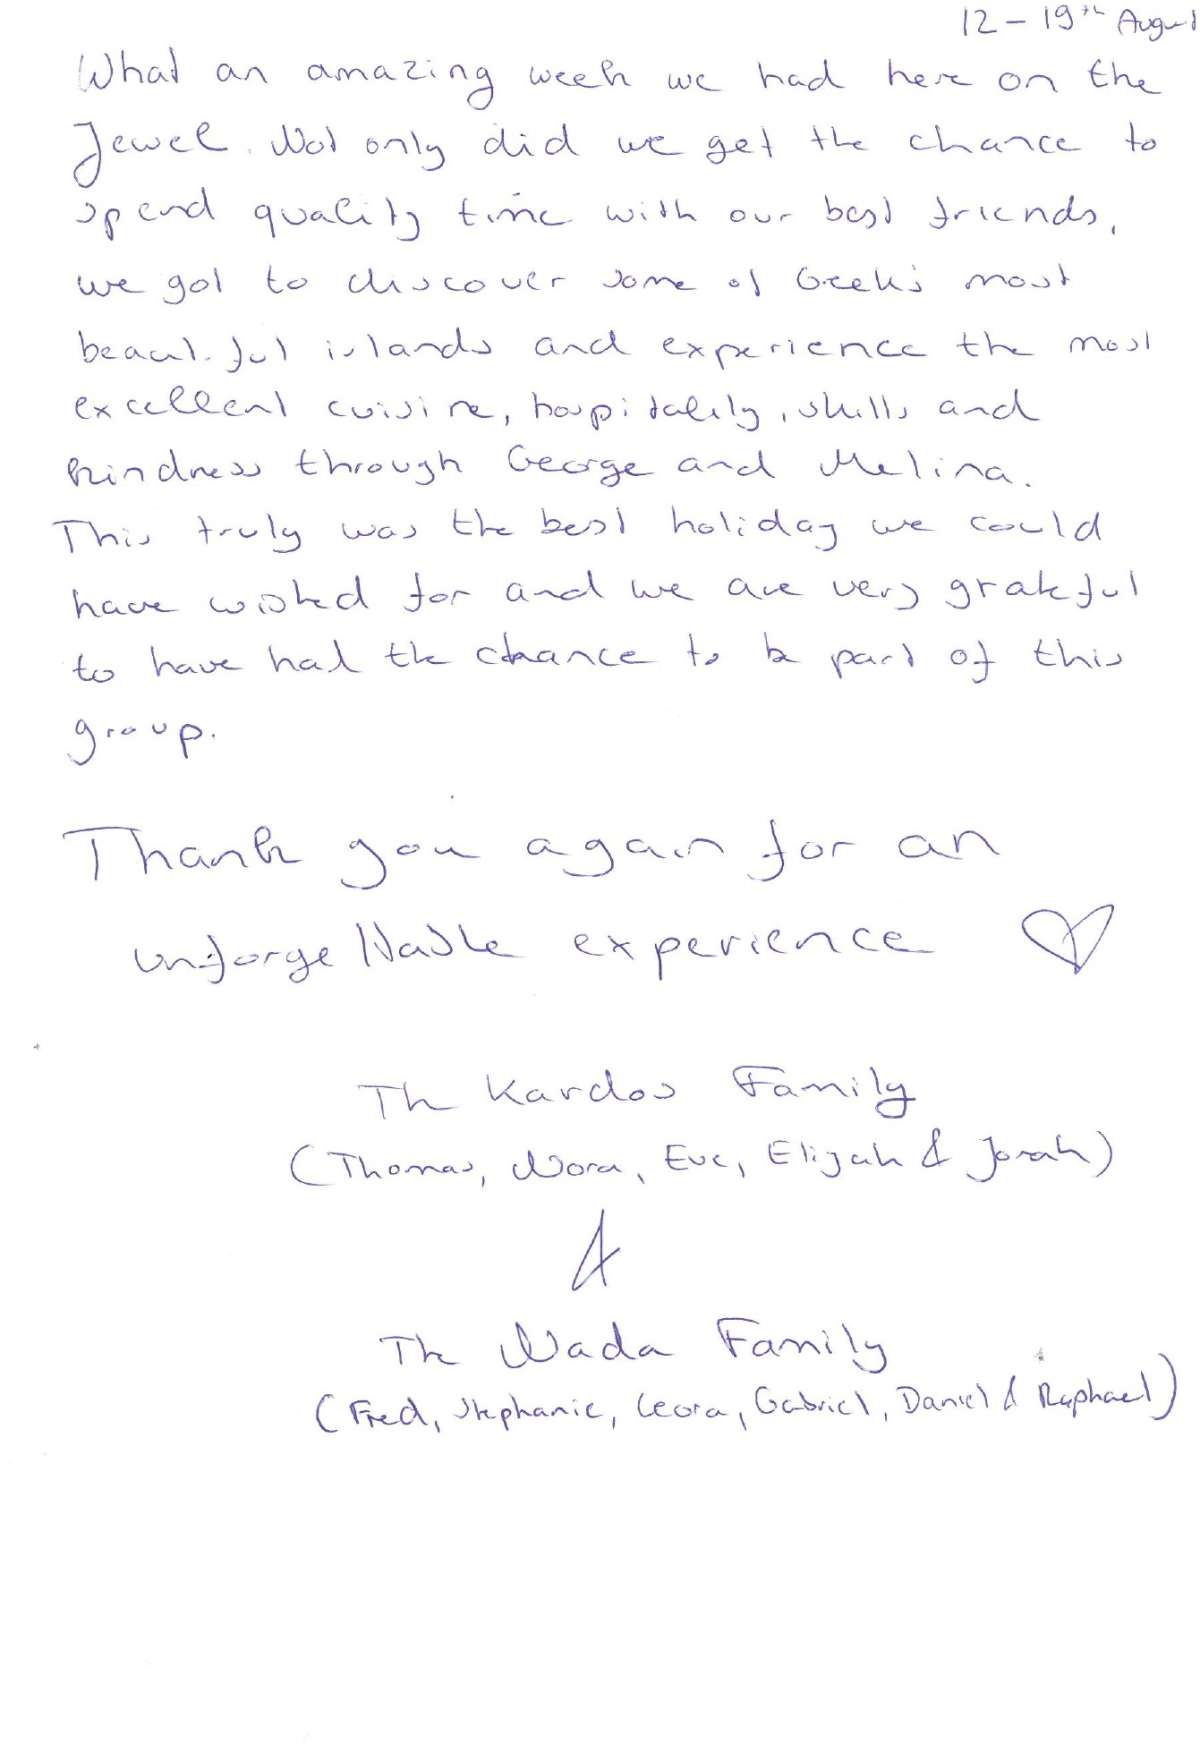 12 - 19th August
What an amazing week we had here on the
Jewel. Not only did we get the chance to
spend quality time with our best friends,
we got to discover some of Greek's most
beautiful islands and experience the most
excellent cuisine, hospitality, skills and
kindness through George and Melina.
This truly was the best holiday we could
have wished for and we are very grateful
to have had the chance to be part of this
group.
Thank you again for an
unforgettable experience ♡
The Kardos Family
(Thomas, Nora, Eve, Elijah & Jonah)
&
The Wada Family
(Fred, Stephanie, Leora, Gabriel, Daniel & Raphael)